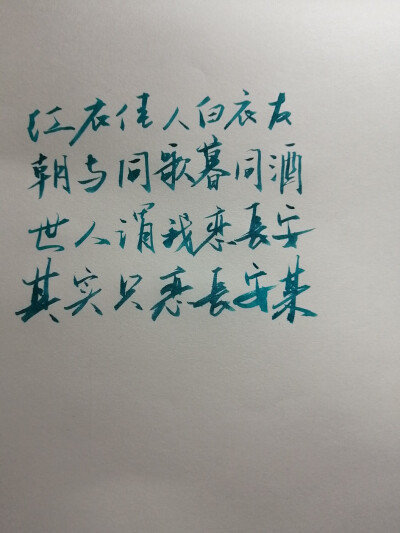 红衣佳人白衣友
朝与同歌暮同酒
世人谓我恋長安
其实只恋長安某